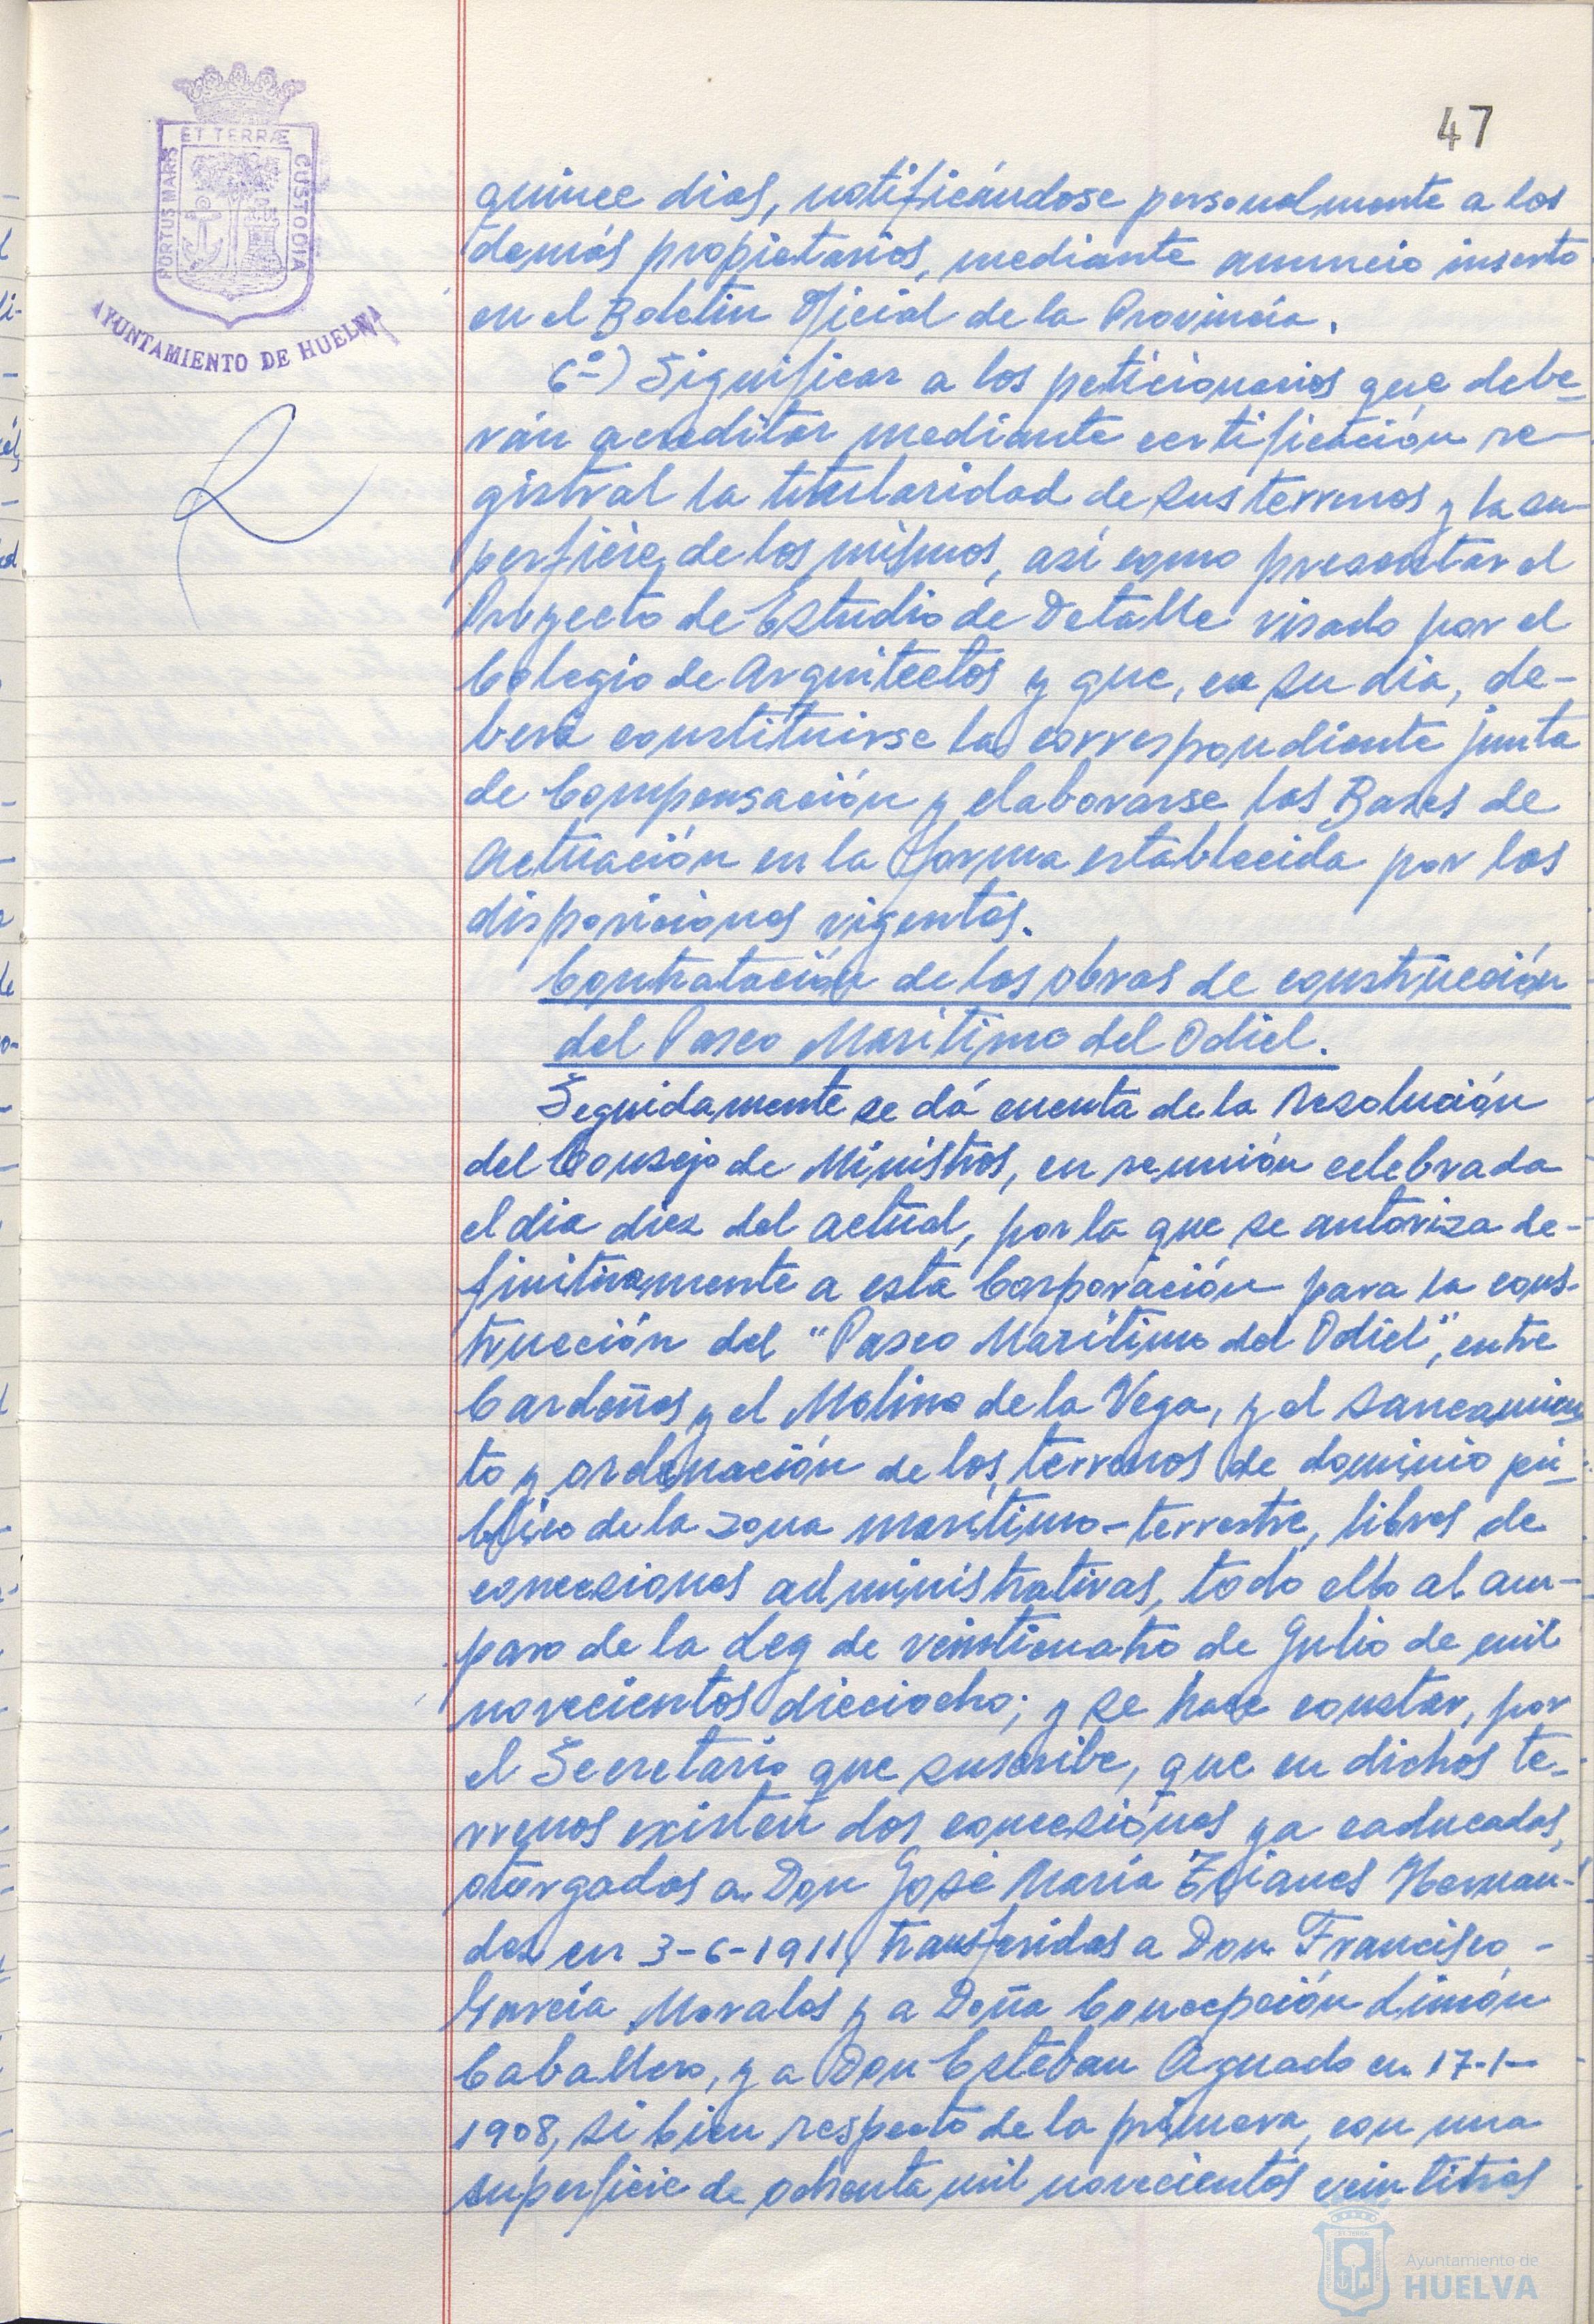 47
ET TERRÆ
PORTUS MARIS
CUSTODIA
AYUNTAMIENTO DE HUELVA
quince dias, notificándose personalmente a los
demás propietarios, mediante anuncio inserto
en el Boletin Oficial de la Provincia.
6º) Significar a los peticionarios que debe-
rán acreditar mediante certificación re-
gistral la titularidad de sus terrenos y la su-
perficie de los mismos, así como presentar el
Proyecto de Estudio de Detalle visado por el
Colegio de Arquitectos y que, en su dia, de-
berá constituirse la correspondiente junta
de Compensación y elaborarse las Bases de
Actuación en la forma establecida por las
disposiciones vigentes.
Contratación de las obras de construcción
del Paseo Marítimo del Odiel.
Seguidamente se dá cuenta de la resolución
del Consejo de Ministros, en reunión celebrada
el dia diez del actual, por la que se autoriza de-
finitivamente a esta Corporación para la cons-
trucción del "Paseo Marítimo del Odiel", entre
Cardeñas y el Molino de la Vega, y el saneamien
to y ordenación de los terrenos de dominio pú-
blico de la zona marítimo-terrestre, libres de
concesiones administrativas, todo ello al am-
paro de la Ley de veinticuatro de Julio de mil
novecientos dieciocho; y se hace constar, por
el Secretario que suscribe, que en dichos te-
rrenos existen dos concesiones ya caducadas,
otorgadas a Don José María Hernan-
dez en 3-6-1911, transferidas a Don Francisco
García Morales y a Doña Concepción Limón
Caballero, y a Don Esteban Aguado en 17-1-
1908, si bien respecto de la primera, con una
superficie de ochenta mil novecientos veintitres
Ayuntamiento de
HUELVA